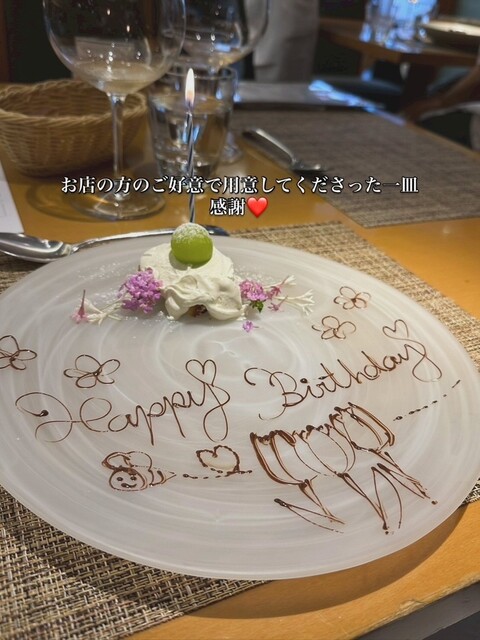 お店の方のご好意で用意してくださった一皿
感謝❤️
Happy Birthday